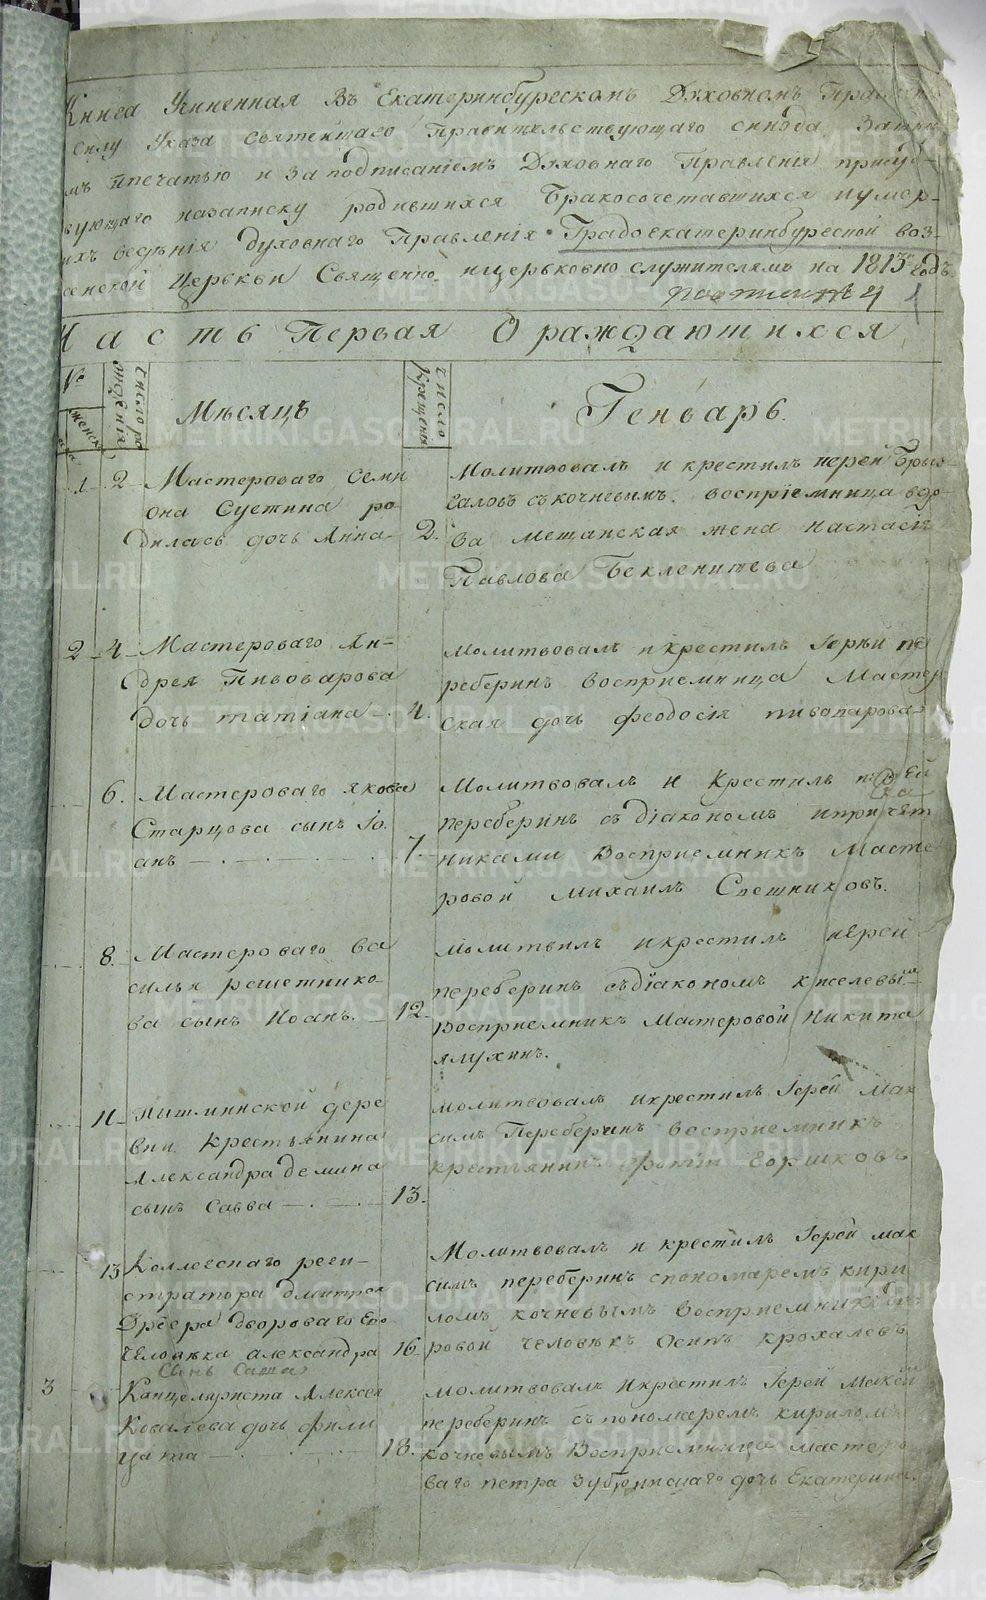 Книга Учиненная Въ Екатеринбургскомъ Духовномъ
силу Указа святейшаго Правительствующаго синода За
печатью и За подписаніемъ Духовнаго Правленія
назаписку родившихся Бракосочетавшихся иумер-
веденія духовнаго Правленія Градоекатеринбургской воз-
Церькви Священно, ицерьковно служителямъ на 1813 годъ.
1
Часть Первая О раждающихся
№
женска
число ро
жденія
Мѣсяцъ
число
Крещенія
Геньварь
1 2 Мастероваго Семи
она Сустина ро-
дилась дочь Анна
2. Молитвовалъ и крестилъ иерей
съкочневымъ. восприемница
ва мещанская жена Настасія
Павлова Бекленищева
2 4 Мастероваго Ан-
дрея Пивоварова
дочь татіана
4. Молитвовалъ и крестилъ Іерѣй пе
реберинъ восприемница Мастер
ская дочь феодосія пивоварова
6. Мастероваго якова
Старцова сынъ Іо.
анъ
7. Молитвовалъ и Крестилъ
переберинъ съдіакономъ ипричет
никами Восприемникъ Масте
ровой михаилъ Спешниковъ.
8. Мастероваго ва
силья решетнико-
ва сынъ Иоанъ.
12. молитвилъ икрестилъ иерей
переберинъ съдіакономъ киселевы
восприемникъ Мастеровой Никита
ялухинъ.
11. Пишминской дере
вни крестьянина
Александра демина
сынъ Савва
13. молитвовалъ икрестилъ Іерей Мак
симъ Переберинъ восприемникъ
крестьянинъ фотіи Горшковъ
13 Коллегскаго реги-
стратора дмитрея
дворового Его
человѣка александра
сынъ Саша
16. Молитвовалъ и крестилъ Іерей мак
симъ переберинъ спономаремъ кири
ломъ кочневымъ восприемникъ
ровой человѣкъ осипъ крохалевъ
3 Канцеляриста Алексея
Ковалева дочь фили
цата
18. молитвовалъ икрестилъ Іерей
переберинъ съпономаремъ кириломъ
кочневымъ Восприемница мастеро
ваго петра дочь Екатерина.
METRIKI.GASO-URAL.RU